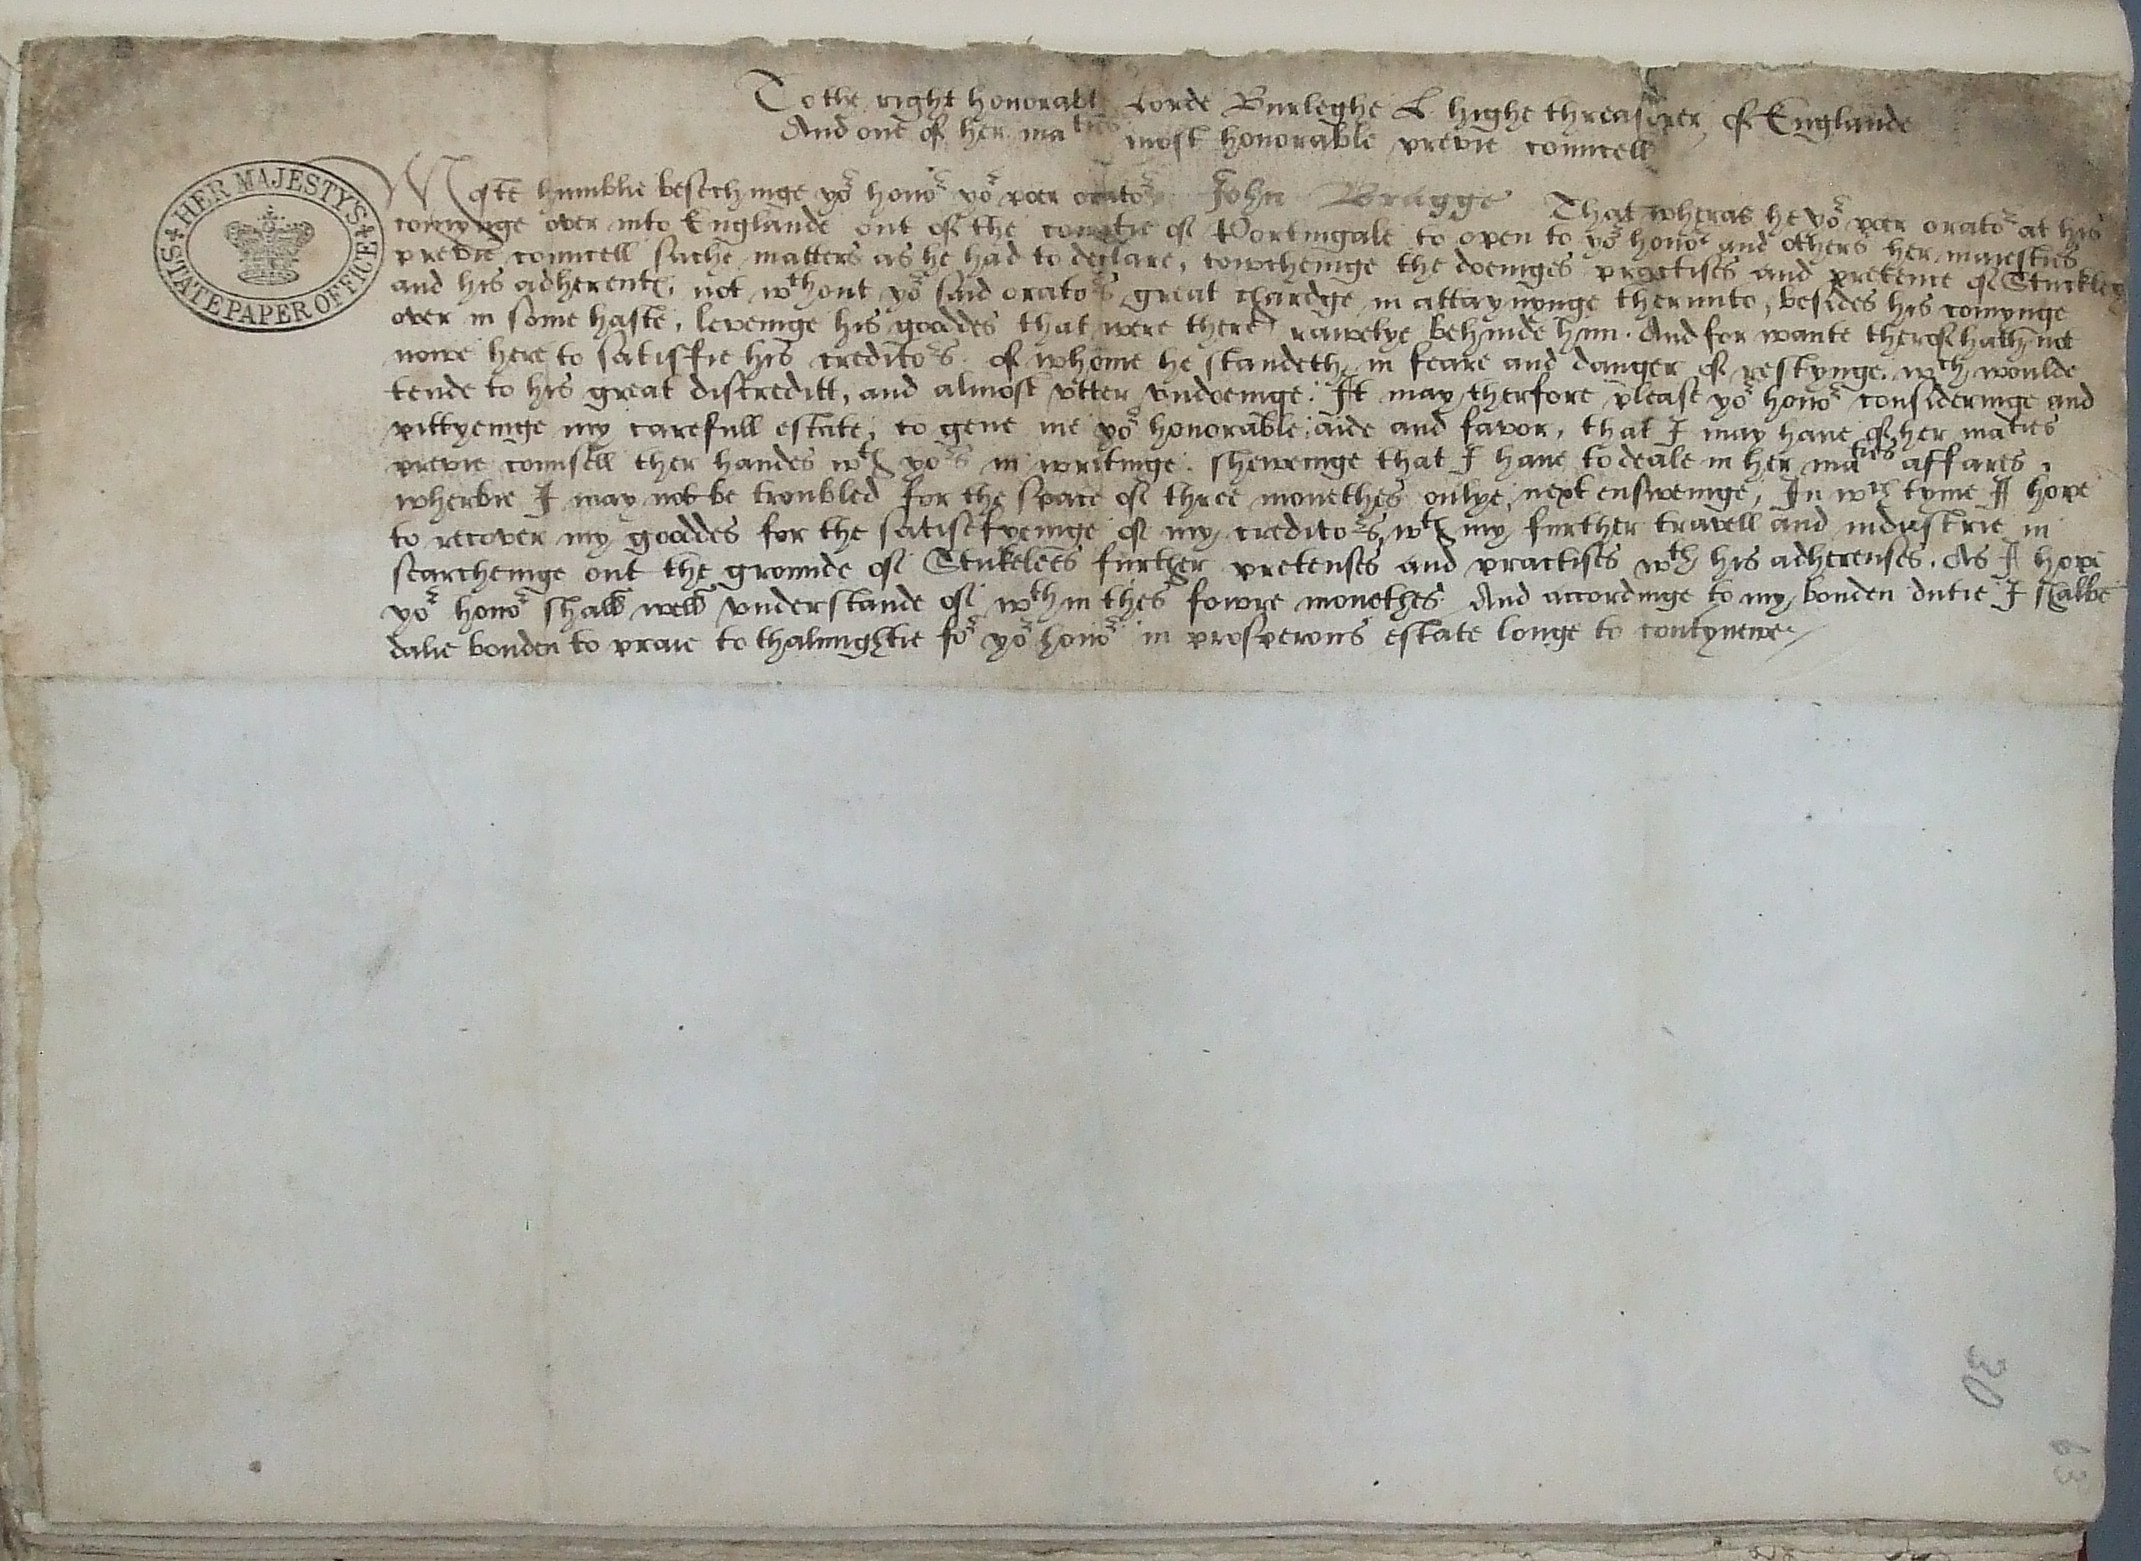 To the right honorable Lorde Burleghe L. highe threasorer of Englande
And one of her maties most honorable prevye councell
HER MAJESTY'S STATE PAPER OFFICE
Moste humblie besechinge yor honor yor poer orator John Bragge That wheras he yor poer orator at his
comynge over into Englande out of the contrie of Portingale to open to yor honor and others her majesties
previe councell suche matters as he had to declare, towcheinge the doeinges practises and pretence of Stuckley
and his adherents, not wthout yor said orators great chardge in attaynynge therunto, besides his comynge
over in some haste, leveinge his gooddes that were there rawelye behinde him. And for wante therof hath not
nowe here to satisfie his creditors of whome he standeth in feare and danger of restynge. wch woulde
tende to his great discreditt, and almost vtter vndoeinge. It may therfore please yor honor consideringe and
pittyeinge my carefull estate, to geue me yor honorable aide and favor, that I may haue of her maties
previe counsell ther handes wth yors in writinge. sheweinge that I haue to deale in her maties affares,
wherbie I may not be troubled for the space of three monethes onlye, next ensweinge, In wch tyme I hope
to recover my gooddes for the satisefyeinge of my creditors, wth my further travell and industrie in
searcheinge out the grounde of Stukelees further pretenses and practises wth his adherenses. As I hope
yor honor shall well vnderstande of wthin thes fowre monethes And accordinge to my bonden dutie I shalbe
dalie bonden to praie to thalmightie for yor honor in prosperous estate longe to contynewe
30
63